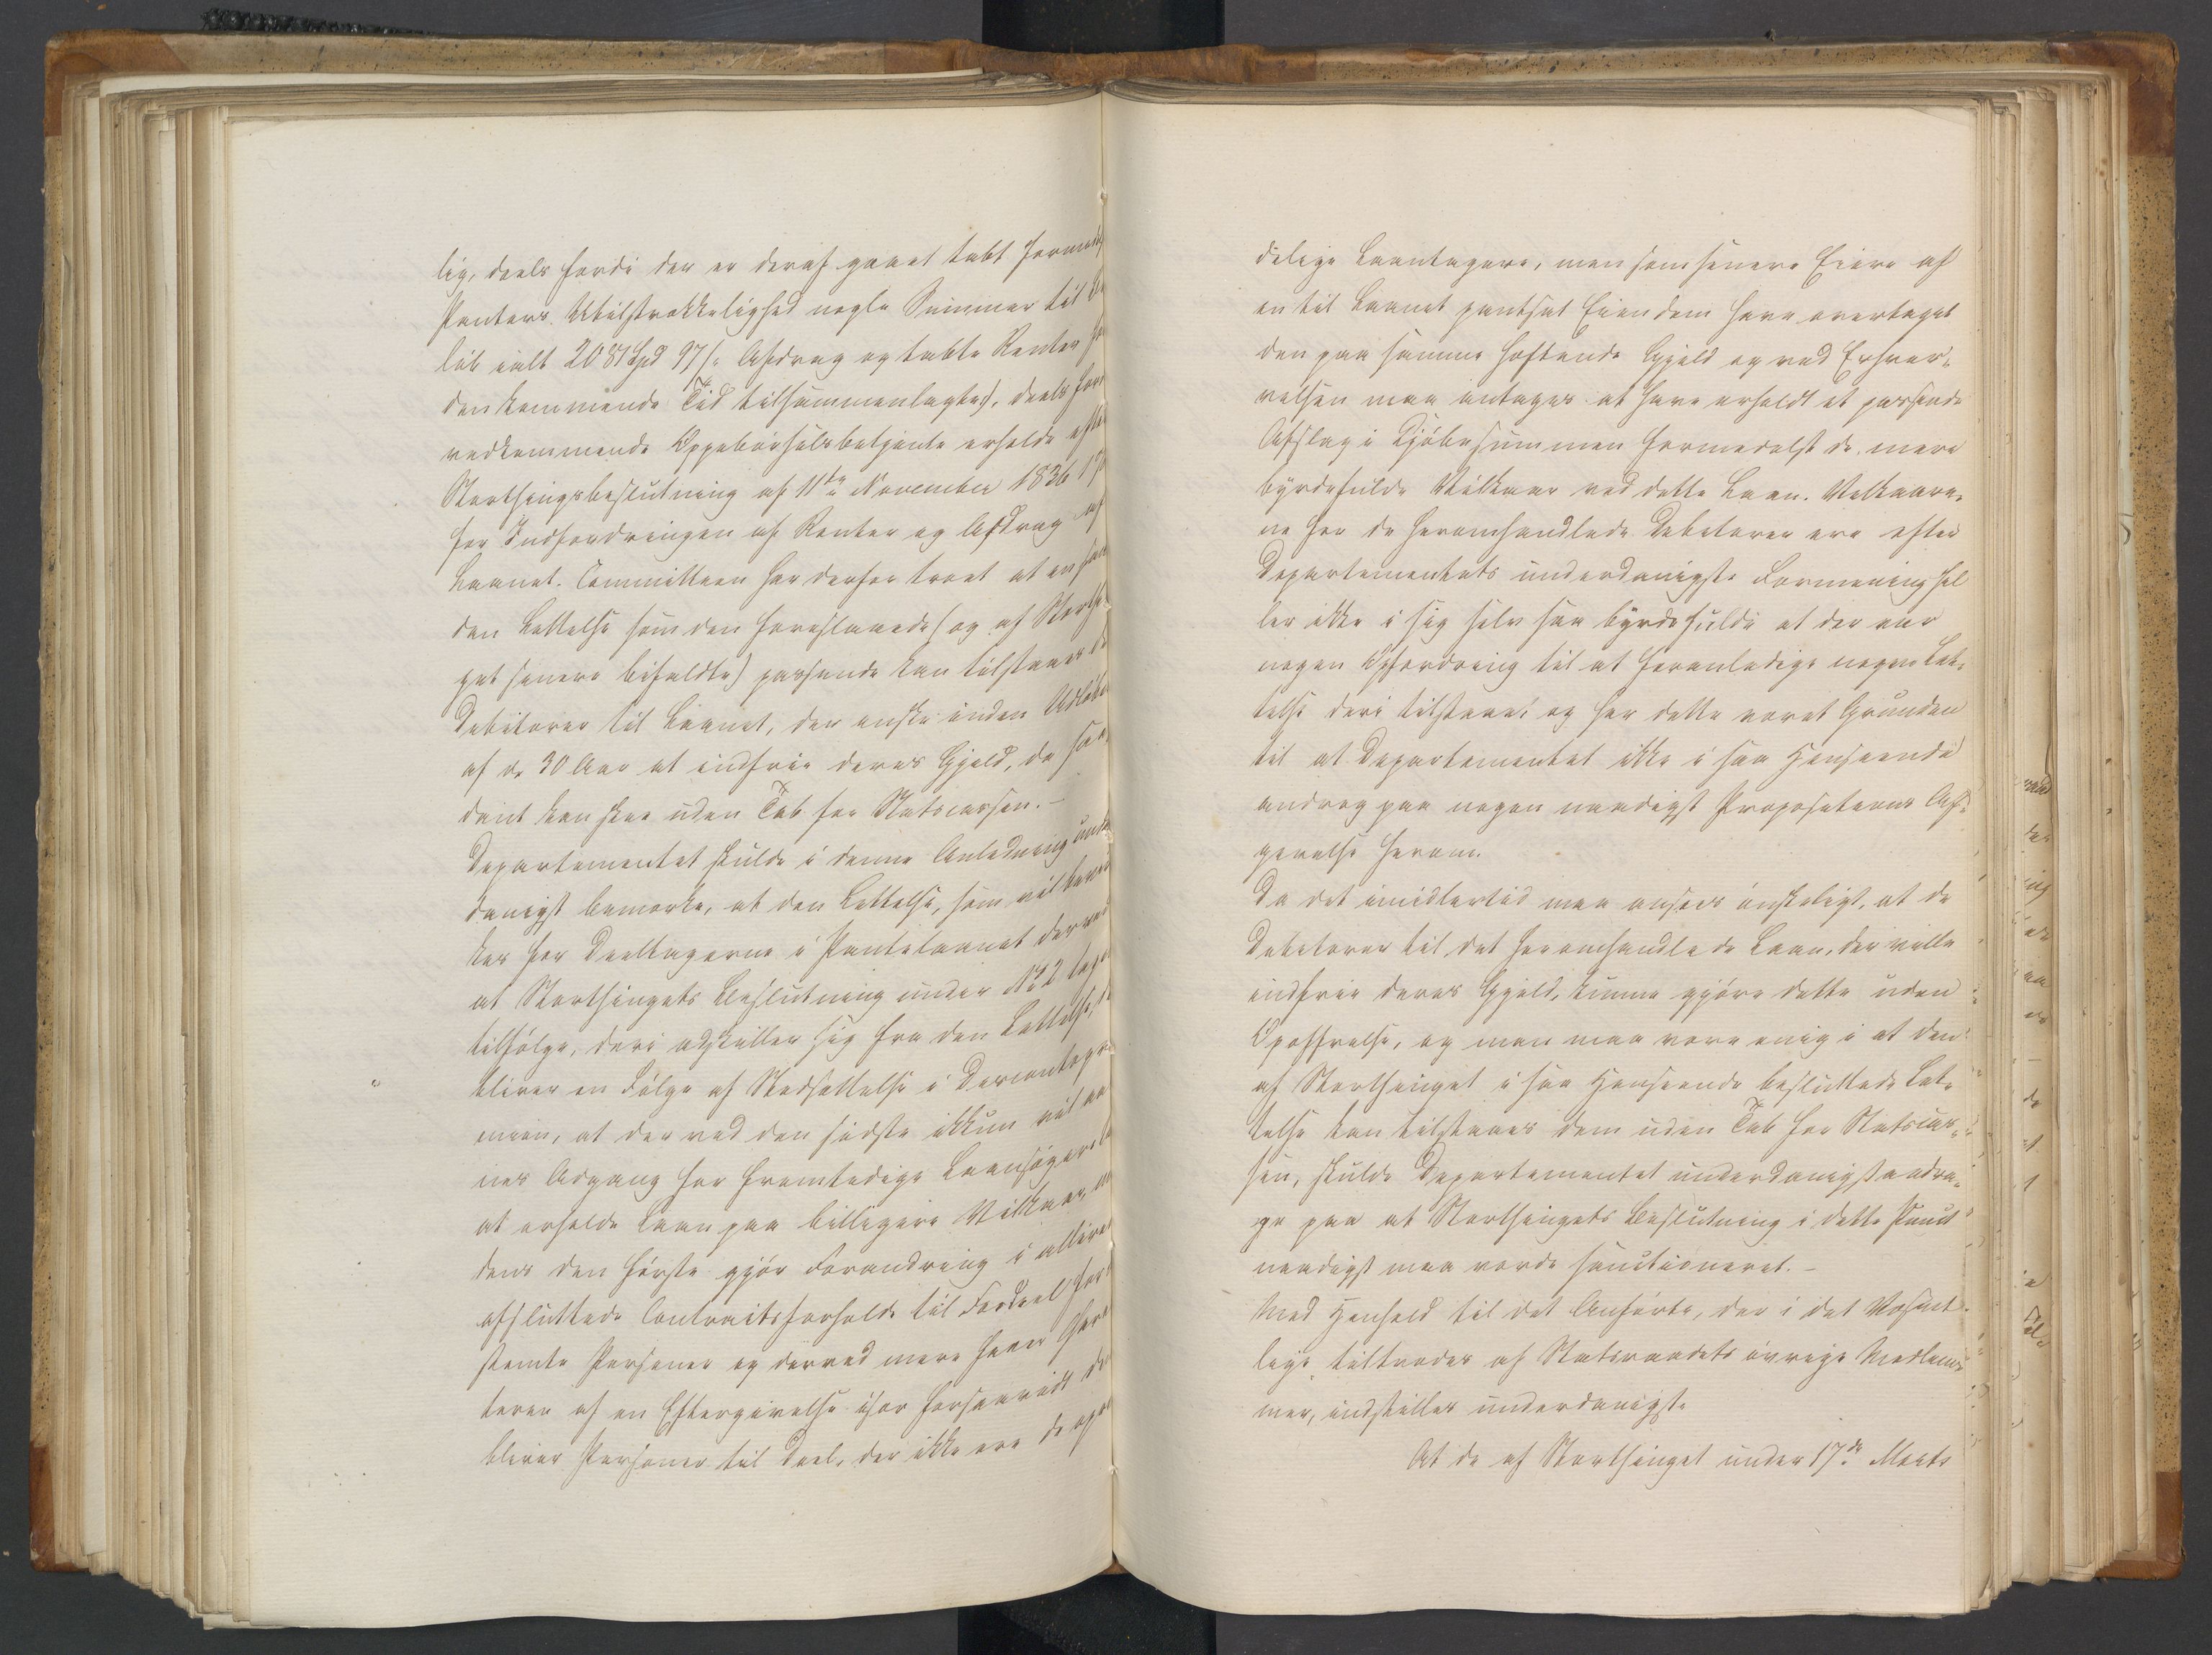 lig, deels fordi der er deraf gaaet tabt formed
Panters Utilstrækkelighed nogle Summer til Be
løb ialt 2081 Spd 97 s. Afdrag og tabte Renter for
den kommende Tid tilsammenlagte), deels fordi
vedkommende Oppebørselsbetjente erholde efter
Storthingsbeslutning af 11te November 1836 1 p
for Indfordringen af Renter og Afdrag af
Laanet. Committeen har derfor troet at en saa
dan Lettelse som den foreslaaede (og af Storthin
get senere bifaldte) passende kan tilstaaes de
Debitorer til Laanet, der ønske inden Udløbet
af de 30 Aar at indfrie deres Gjeld, da saa
dant kan skee uden Tab for Statscassen. –
Departementet skulde i denne Anledning under
danigst bemærke, at den Lettelse, som vil bevir
kes for Deeltagerne i Pantelaanet derved
at Storthingets Beslutning under No 2 tages
tilfølge, deri adskiller sig fra den Lettelse, der
bliver en Følge af Nedsættelse i Discontopro
mien, at der ved den sidste ikkun vil aab
nes Adgang for fremtidige Laansøgere til
at erholde Laan paa billigere Vilkaar, me
dens den første gjør Forandring i allerede
afsluttede Contractsforholde til Fordeel for be
stemte Personer og derved mere haver Charac
teren af en Eftergivelse især forsaavidt den
bliver Personer til Deel, der ikke ere de op
delige Laantagere, men som senere Eiere af
en til Laanet pantsat Eiendom have overtaget
den paa samme heftende Gjeld og ved Erhver-
velsen maa antages at have erholdt et passende
Afslag i Kjøbesummen formedelst de mere
byrdefulde Vilkaar ved dette Laan. Vilkaare-
ne for de heromhandlede Debitorer ere efter
Departementets underdanigste Formening hel
ler ikke i sig selv saa byrdefulde at der var
nogen Opfordring til at foranledige nogen Let-
telse deri tilstaaet og har dette været Grunden
til at Departementet ikke i saa Henseende
androg paa nogen naadigst Propositions Af-
givelse herom.
Da det imidlertid maa ansees ønskeligt, at de
Debitorer til det heromhandlede Laan, der ville
indfrie deres Gjeld, kunne gjøre dette uden
Opoffrelse, og man maa være enig i at den
af Storthinget i saa Henseende besluttede Let-
telse kan tilstaaes dem uden Tab for Statscas-
sen, skulde Departementet underdanigst andra-
ge paa at Storthingets Beslutning i dette Punct
naadigst maa vorde sanctioneret. –
Med Henhold til det Anførte, der i det Væsent-
lige tiltrædes af Statsraadets øvrige Medlem-
mer, indstilles underdanigst
At de af Storthinget under 17de Marts